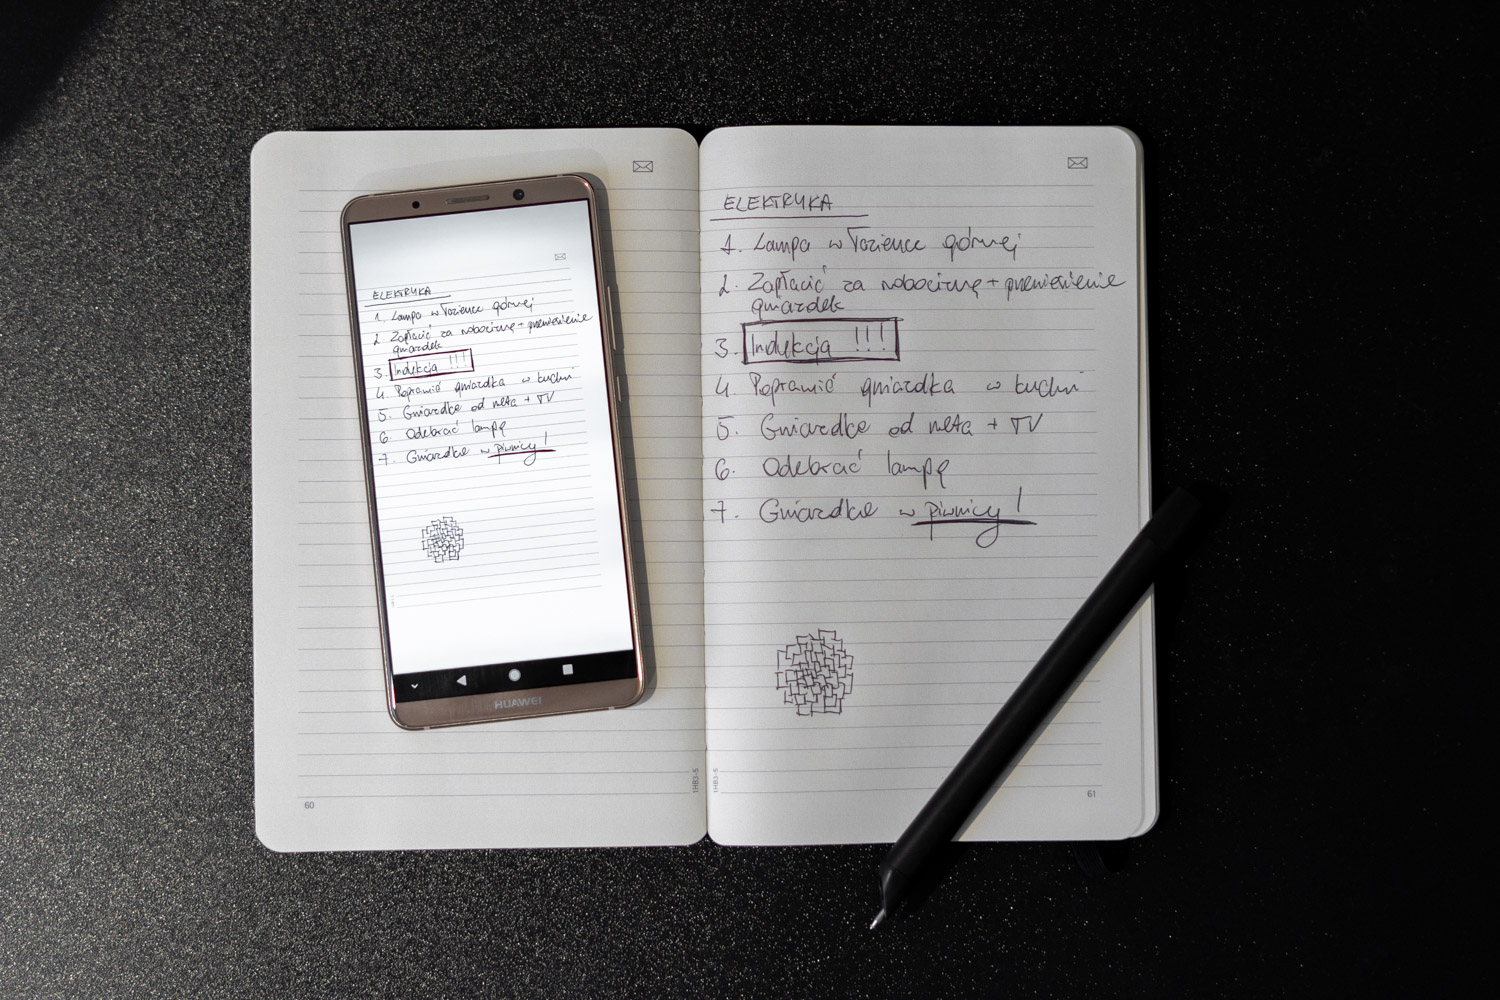 ELEKTRYKA
1. Lampa w łazience górnej
2. Zapłacić za robociznę + przeniesienie
gniazdek
3. Indukcja !!!
4. Poprawić gniazdka w kuchni
5. Gniazdko od neta + TV
6. Odebrać lampę
7. Gniazdko w piwnicy!
HUAWEI
60
1HB3-5
ELEKTRYKA
1. Lampa w łazience górnej
2. Zapłacić za robociznę + przeniesienie
gniazdek
3. Indukcja !!!
4. Poprawić gniazdka w kuchni
5. Gniazdko od neta + TV
6. Odebrać lampę
7. Gniazdko w piwnicy!
1HB3-5
61